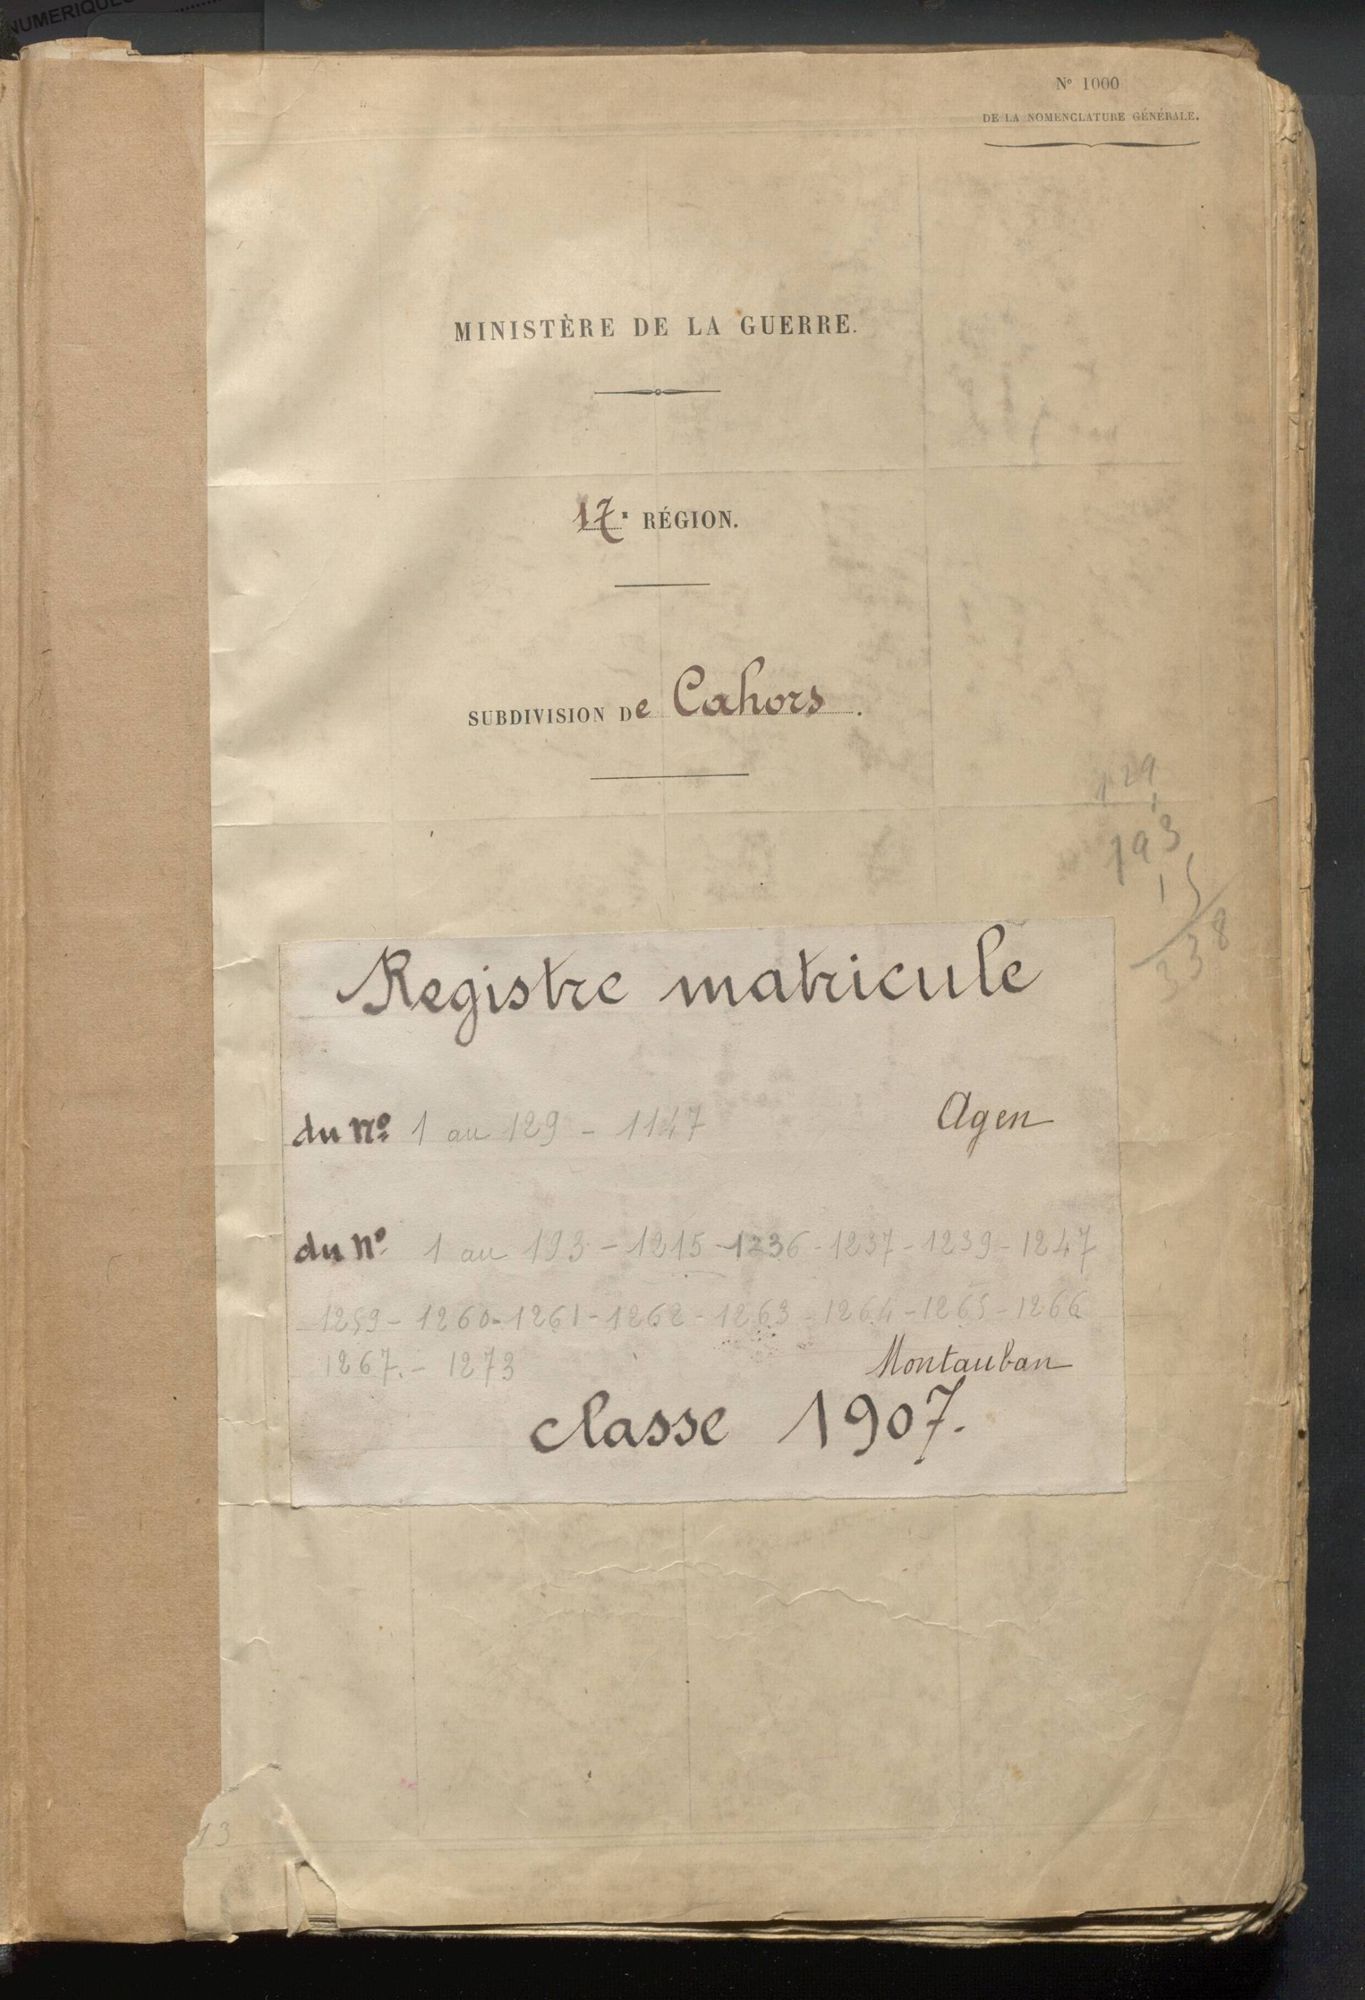 N° 1000
DE LA NOMENCLATURE GÉNÉRALE.
MINISTÈRE DE LA GUERRE.
17e RÉGION.
SUBDIVISION De Cahors.
129
1
193
15
338
Registre matricule
du No 1 au 129 - 1147 Agen
du No 1 au 193 - 1215 - 1236 - 1237 - 1239 - 1247
1259 - 1260 - 1261 - 1262 - 1263 - 1264 - 1265 - 1266
1267. - 1273 Montauban
classe 1907.
13